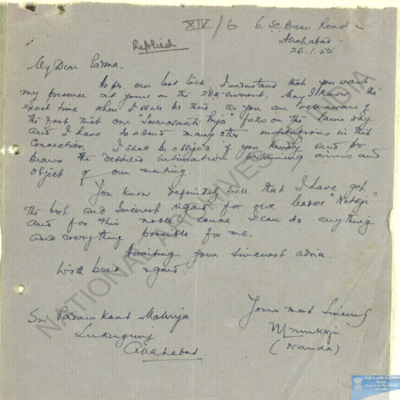 XIV/6
6, S.C. Basu Road
Allahabad
26.1.55
Replied
My Dear Parma,
As per our last talk I understand that you want
my presence at yours on the 28th current. May I know the
exact time when I shall be there as you are well aware of
the fact that our "Saraswati Puja" falls on the same day
and I have to attend many other institutions in that
connection. I shall be obliged if you kindly send per
bearer the detailed intimation containing aims and
object of our meeting.
You know definitely well that I have got
the high and sincerest regard for our leader "Netaji"
and for this noble cause I can do anything
and everything possible for me.
Awaiting your sincerest advice.
With best regard.
Yours most Sincerely
(Nanda)
Sri Parma Kant Malviya
Lukerganj
Allahabad
NATIONAL ARCHIVES INDIA